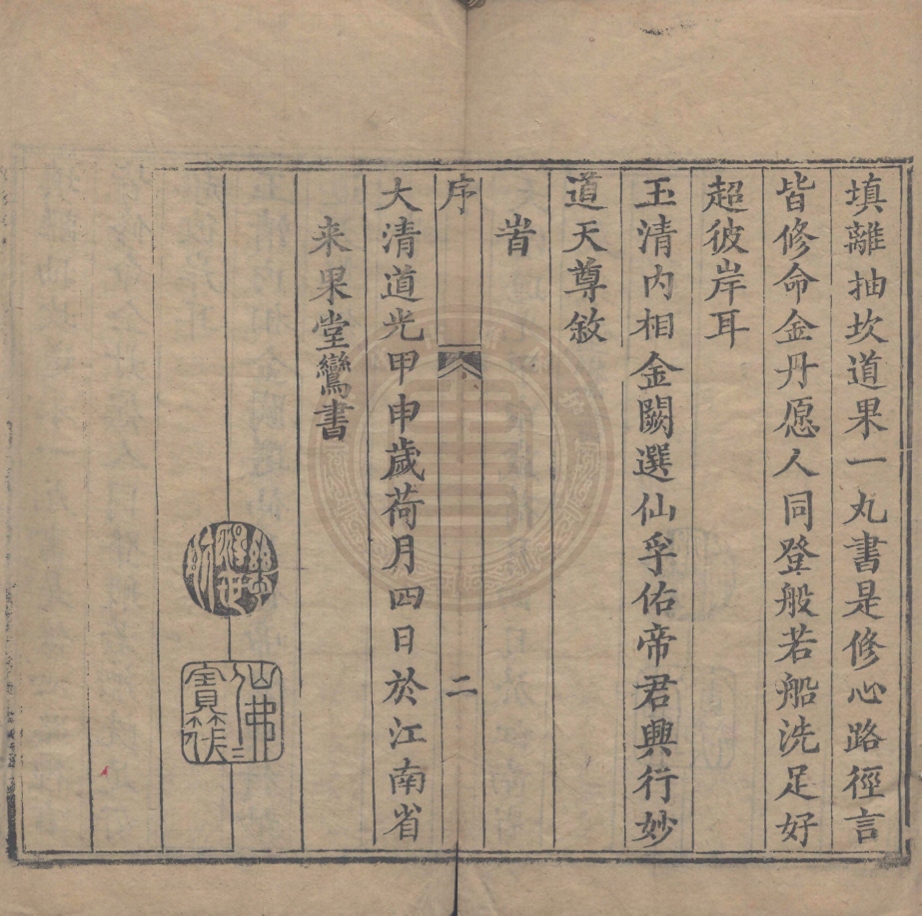 填離抽坎道果一丸書是修心路徑言
皆修命金丹愿人同登般若船洗足好
超彼岸耳
玉清内相金闕選仙孚佑帝君興行妙
道天尊敘
旹
序 二
大清道光甲申歲荷月四日於江南省
来果堂鸞書
仙佛
寶籙